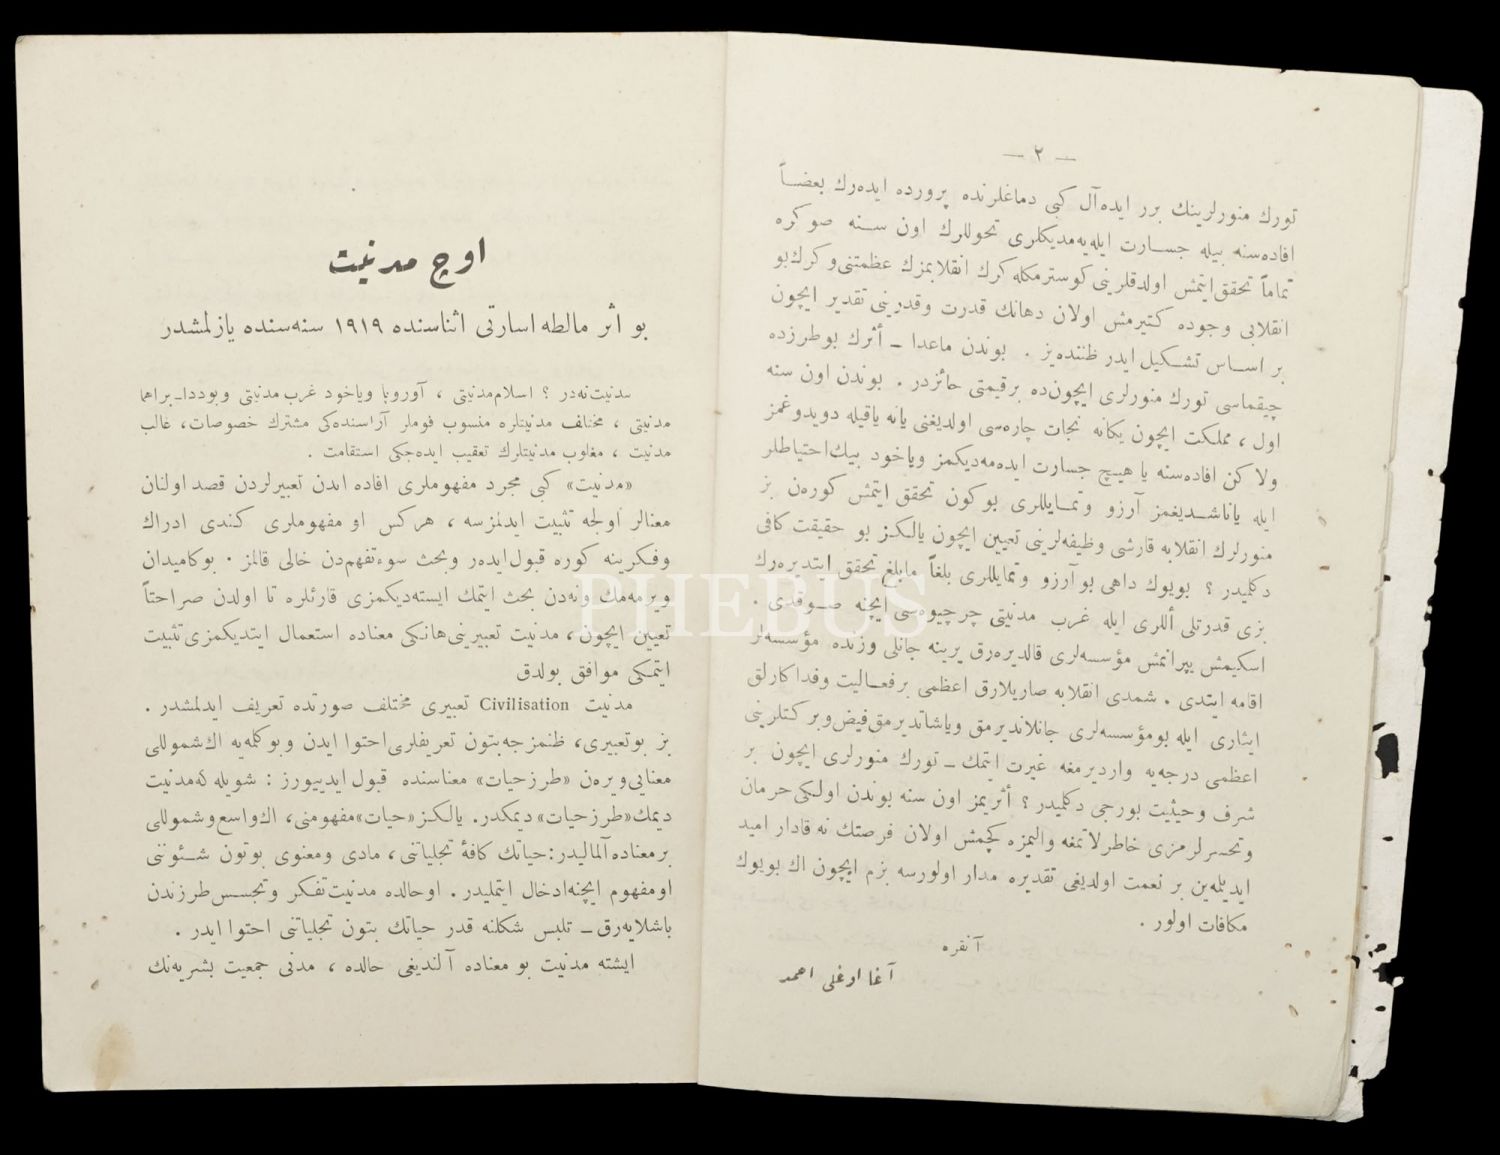 — ٢ —
تورك منورلرينك برر ايده‌آل كبى دماغلرنده پرورده ايده‌رك بعضاً
افاده‌سنه بيله جسارت ايله‌يه‌مديكلرى تحوللرك اون سنه صوكره
تماماً تحقق ايتمش اولدقلرينى كوسترمكله كرك انقلابمزك عظمتنى و كرك بو
انقلابى وجوده كتيرمش اولان دهانك قدرت وقدرينى تقدير ايچون
بر اساس تشكيل ايدر ظننده‌يز . بوندن ماعدا ــ أثرك بوطرزده
چيقماسى تورك منورلرى ايچون‌ده برقيمتى حائزدر . بوندن اون سنه
اول ، مملكت ايچون يكانه نجات چاره‌سى اولديغنى يانه ياقيله دويدوغمز
ولا كن افاده‌سنه يا هيچ جسارت ايده‌مه‌ديكمز وياخود بيك احتياطلر
ايله ياناشديغمز آرزو وتمايللرى بوكون تحقق ايتمش كوره‌ن بز
منورلرك انقلابه قارشى وظيفه‌لرينى تعيين ايچون يالكز بو حقيقت كافى
دكلميدر ؟ بويوك داهى بو آرزو وتمايللرى بلغاً مابلغ تحقق ايتديره‌رك
بزى قدرتلى أللرى ايله غرب مدنيتى چرچيوه‌سى ايچنه صوقدى .
اسكيمش ييپرانمش مؤسسه‌لرى قالديره‌رق يرينه جانلى وزنده مؤسسه‌لر
اقامه ايتدى . شمدى انقلابه صاريلارق اعظمى برفعاليت وفداكارلق
ايثارى ايله بومؤسسه‌لرى جانلانديرمق وياشاتديرمق‌فيض‌وبركتلرينى
اعظمى درجه‌يه وارديرمغه غيرت ايتمك ــ تورك منورلرى ايچون بر
شرف وحيثيت بورجى دكلميدر ؟ أثريمز اون سنه بوندن اولكى حرمان
وتحسرلرمزى خاطرلاتمغه واليمزه كچمش اولان فرصتك نه قادار اميد
ايديلمه‌ين بر نعمت اولديغى تقديره مدار اولورسه بزم ايچون اك بويوك
مكافات اولور .
آنقره
آغا اوغلى احمد
اوچ مدنيت
بو اثر مالطه اسارتى اثناسنده ١٩١٩ سنه‌سنده يازلمشدر
مدنيت‌نه‌در ؟ اسلام‌مدنيتى ، آوروپا وياخود غرب مدنيتى وبوددا-براهما
مدنيتى ، مختلف مدنيتلره منسوب قوملر آراسنده‌كى مشترك خصوصات، غالب
مدنيت ، مغلوب مدنيتلرك تعقيب ايده‌جكى استقامت .
«مدنيت» كبى مجرد مفهوملرى افاده ايدن تعبيرلردن قصد اولنان
معنالر اولجه تثبيت ايدلمزسه ، هركس او مفهوملرى كندى ادراك
وفكرينه كوره قبول‌ايده‌ر وبحث سوءتفهم‌دن خالى قالمز . بوكاميدان
ويرمه‌مك ونه‌دن بحث ايتمك ايسته‌ديكمزى قارئلره تا اولدن صراحتاً
تعيين ايچون، مدنيت تعبيرينى‌هانكى معناده استعمال ايتديكمزى‌تثبيت
ايتمكى موافق بولدق
مدنيت Civilisation تعبيرى مختلف صورتده تعريف ايدلمشدر .
بز بوتعبيرى، ظنمزجه‌بتون تعريفلرى‌احتوا ايدن وبوكلمه‌يه اك‌شموللى
معنايى‌ويره‌ن «طرزحيات» معناسنده قبول ايدييورز : شويله كه‌مدنيت
ديمك«طرزحيات» ديمكدر. يالكز«حيات»مفهومنى، اك‌واسع‌وشموللى
برمعناده‌آلماليدر:حياتك كافهٔ تجلياتنى، مادى ومعنوى بوتون شئوننى
اومفهوم ايچنه‌ادخال ايتمليدر. اوحالده مدنيت‌تفكر وتجسس‌طرزندن
باشلايه‌رق ــ تلبس شكلنه قدر حياتك بتون تجلياتنى احتوا ايدر .
ايشته مدنيت بو معناده آلنديغى حالده ، مدنى جمعيت بشريه‌نك
PHEBUS